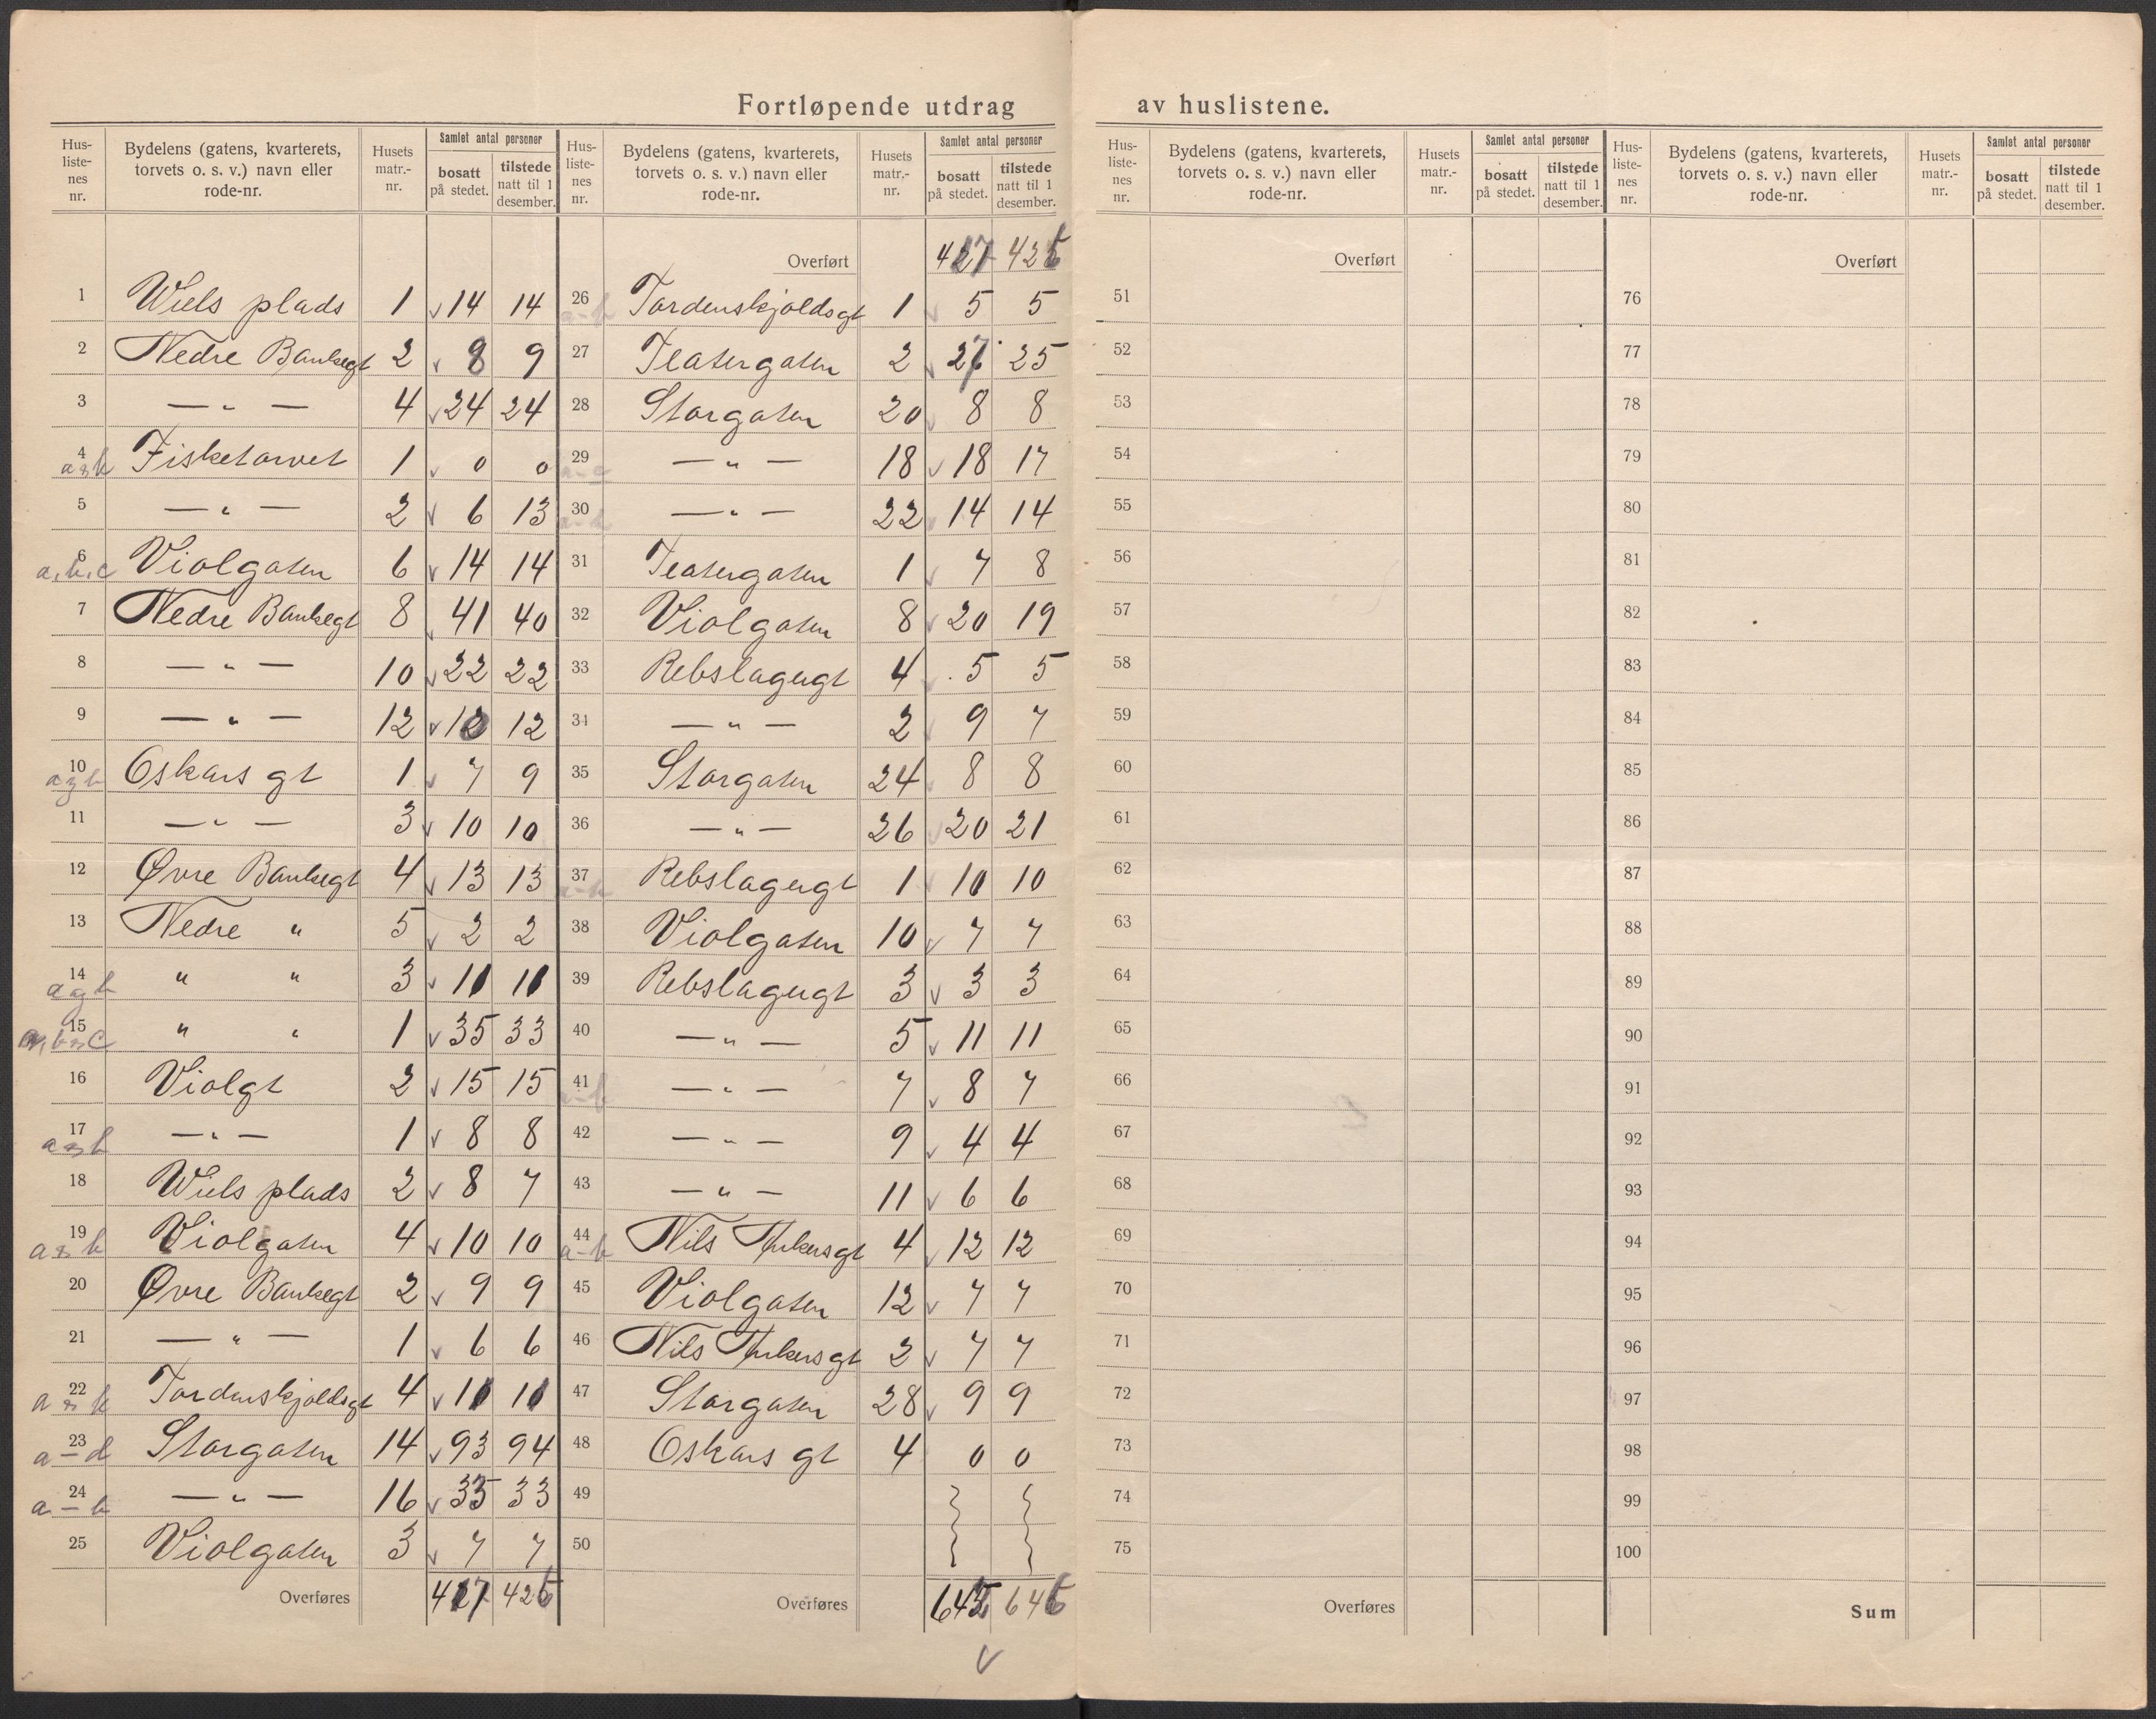 Fortløpende utdrag av huslistene.
Hus-listenes nr. | Bydelens (gatens, kvarterets, torvets o. s. v.) navn eller rode-nr. | Husets matr.-nr. | Samlet antal personer bosatt på stedet. | tilstede natt til 1 desember.
1 Wiels plads 1 v 14 14
2 Nedre Banksegt 2 v 8 9
3 — " — 4 v 24 24
4 a & b Fisketorvet 1 v 0 0
5 — " — 2 v 6 13
6 a, b, c Violgaten 6 v 14 14
7 Nedre Banksegt 8 v 41 40
8 — " — 10 v 22 22
9 — " — 12 v 12
10 a & b Oskars gt 1 v 7 9
11 — " — 3 v 10 10
12 Øvre Banksegt 4 v 13 13
13 Nedre " 5 v 2 2
14 a & b " " 3 v 11 11
15 " " 1 v 35 33
16 Violgt 2 v 15 15
17 a & b — " — 1 v 8 8
18 Wiels plads 2 v 8 7
19 a & b Violgaten 4 v 10 10
20 Øvre Banksegt 2 v 9 9
21 — " — 1 v 6 6
22 a & b Tordenskjoldsgt 4 v 11 11
23 a – d Storgaten 14 v 93 94
24 a – b — " — 16 v 33
25 Violgaten 3 v 7 7
Overføres 427 425
Hus-listenes nr. | Bydelens (gatens, kvarterets, torvets o. s. v.) navn eller rode-nr. | Husets matr.-nr. | Samlet antal personer bosatt på stedet. | tilstede natt til 1 desember.
Overført 427 425
26 a-b Tordenskjoldsgt 1 v 5 5
27 Teatergaten 2 v 27 25
28 Storgaten 20 v 8 8
29 a-c — " — 18 v 18 17
30 a-b — " — 22 v 14 14
31 Teatergaten 1 v 7 8
32 Violgaten 8 v 20 19
33 Rebslagergt 4 v 5 5
34 — " — 2 v 9 7
35 Storgaten 24 v 8 8
36 — " — 26 v 20 21
37 a-b Rebslagergt 1 v 10 10
38 Violgaten 10 v 7 7
39 Rebslagergt 3 v 3 3
40 — " — 5 v 11 11
41 a-b — " — 7 v 8 7
42 — " — 9 v 4 4
43 — " — 11 v 6 6
44 a-b Nils 4 v 12 12
45 Violgaten 12 v 7 7
46 Nils 2 v 7 7
47 Storgaten 28 v 9 9
48 Oskars gt 4 0 0
49
50
Overføres 645 645
v
Hus-listenes nr. | Bydelens (gatens, kvarterets, torvets o. s. v.) navn eller rode-nr. | Husets matr.-nr. | Samlet antal personer bosatt på stedet. | tilstede natt til 1 desember.
Overført
51
52
53
54
55
56
57
58
59
60
61
62
63
64
65
66
67
68
69
70
71
72
73
74
75
Overføres
Hus-listenes nr. | Bydelens (gatens, kvarterets, torvets o. s. v.) navn eller rode-nr. | Husets matr.-nr. | Samlet antal personer bosatt på stedet. | tilstede natt til 1 desember.
Overført
76
77
78
79
80
81
82
83
84
85
86
87
88
89
90
91
92
93
94
95
96
97
98
99
100
Sum